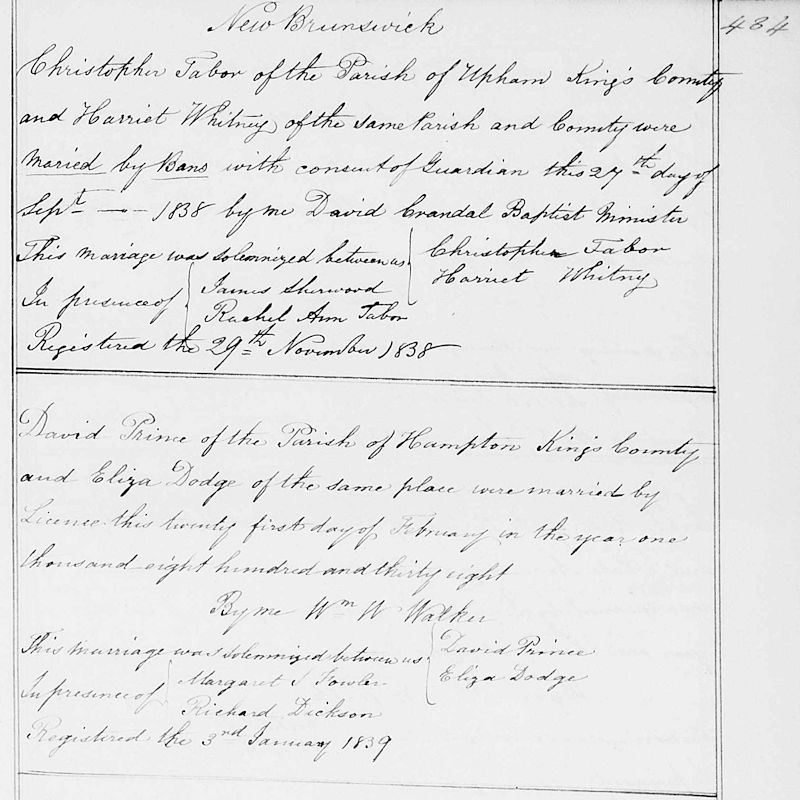 New Brunswick
484
Christopher Tabor of the Parish of Upham King's County
and Harriet Whitney of the same Parish and County were
Maried by Bans with consent of Guardian this 27th day of
Sept — 1838 by me David Crandal Baptist Minister
This mariage was solemnized between us { Christopher Tabor
Harriet Whitny
In presence of { James Sherwood
Rachel Ann Tabor
Registered the 29th November 1838
David Prince of the Parish of Hampton King's County
and Eliza Dodge of the same place were married by
Licence this twenty first day of February in the year one
thousand eight hundred and thirty eight
By me Wm W Walker
This marriage was solemnized between us { David Prince
Eliza Dodge
In presence of { Margaret S Fowler
Richard Dickson
Registered the 3rd January 1839